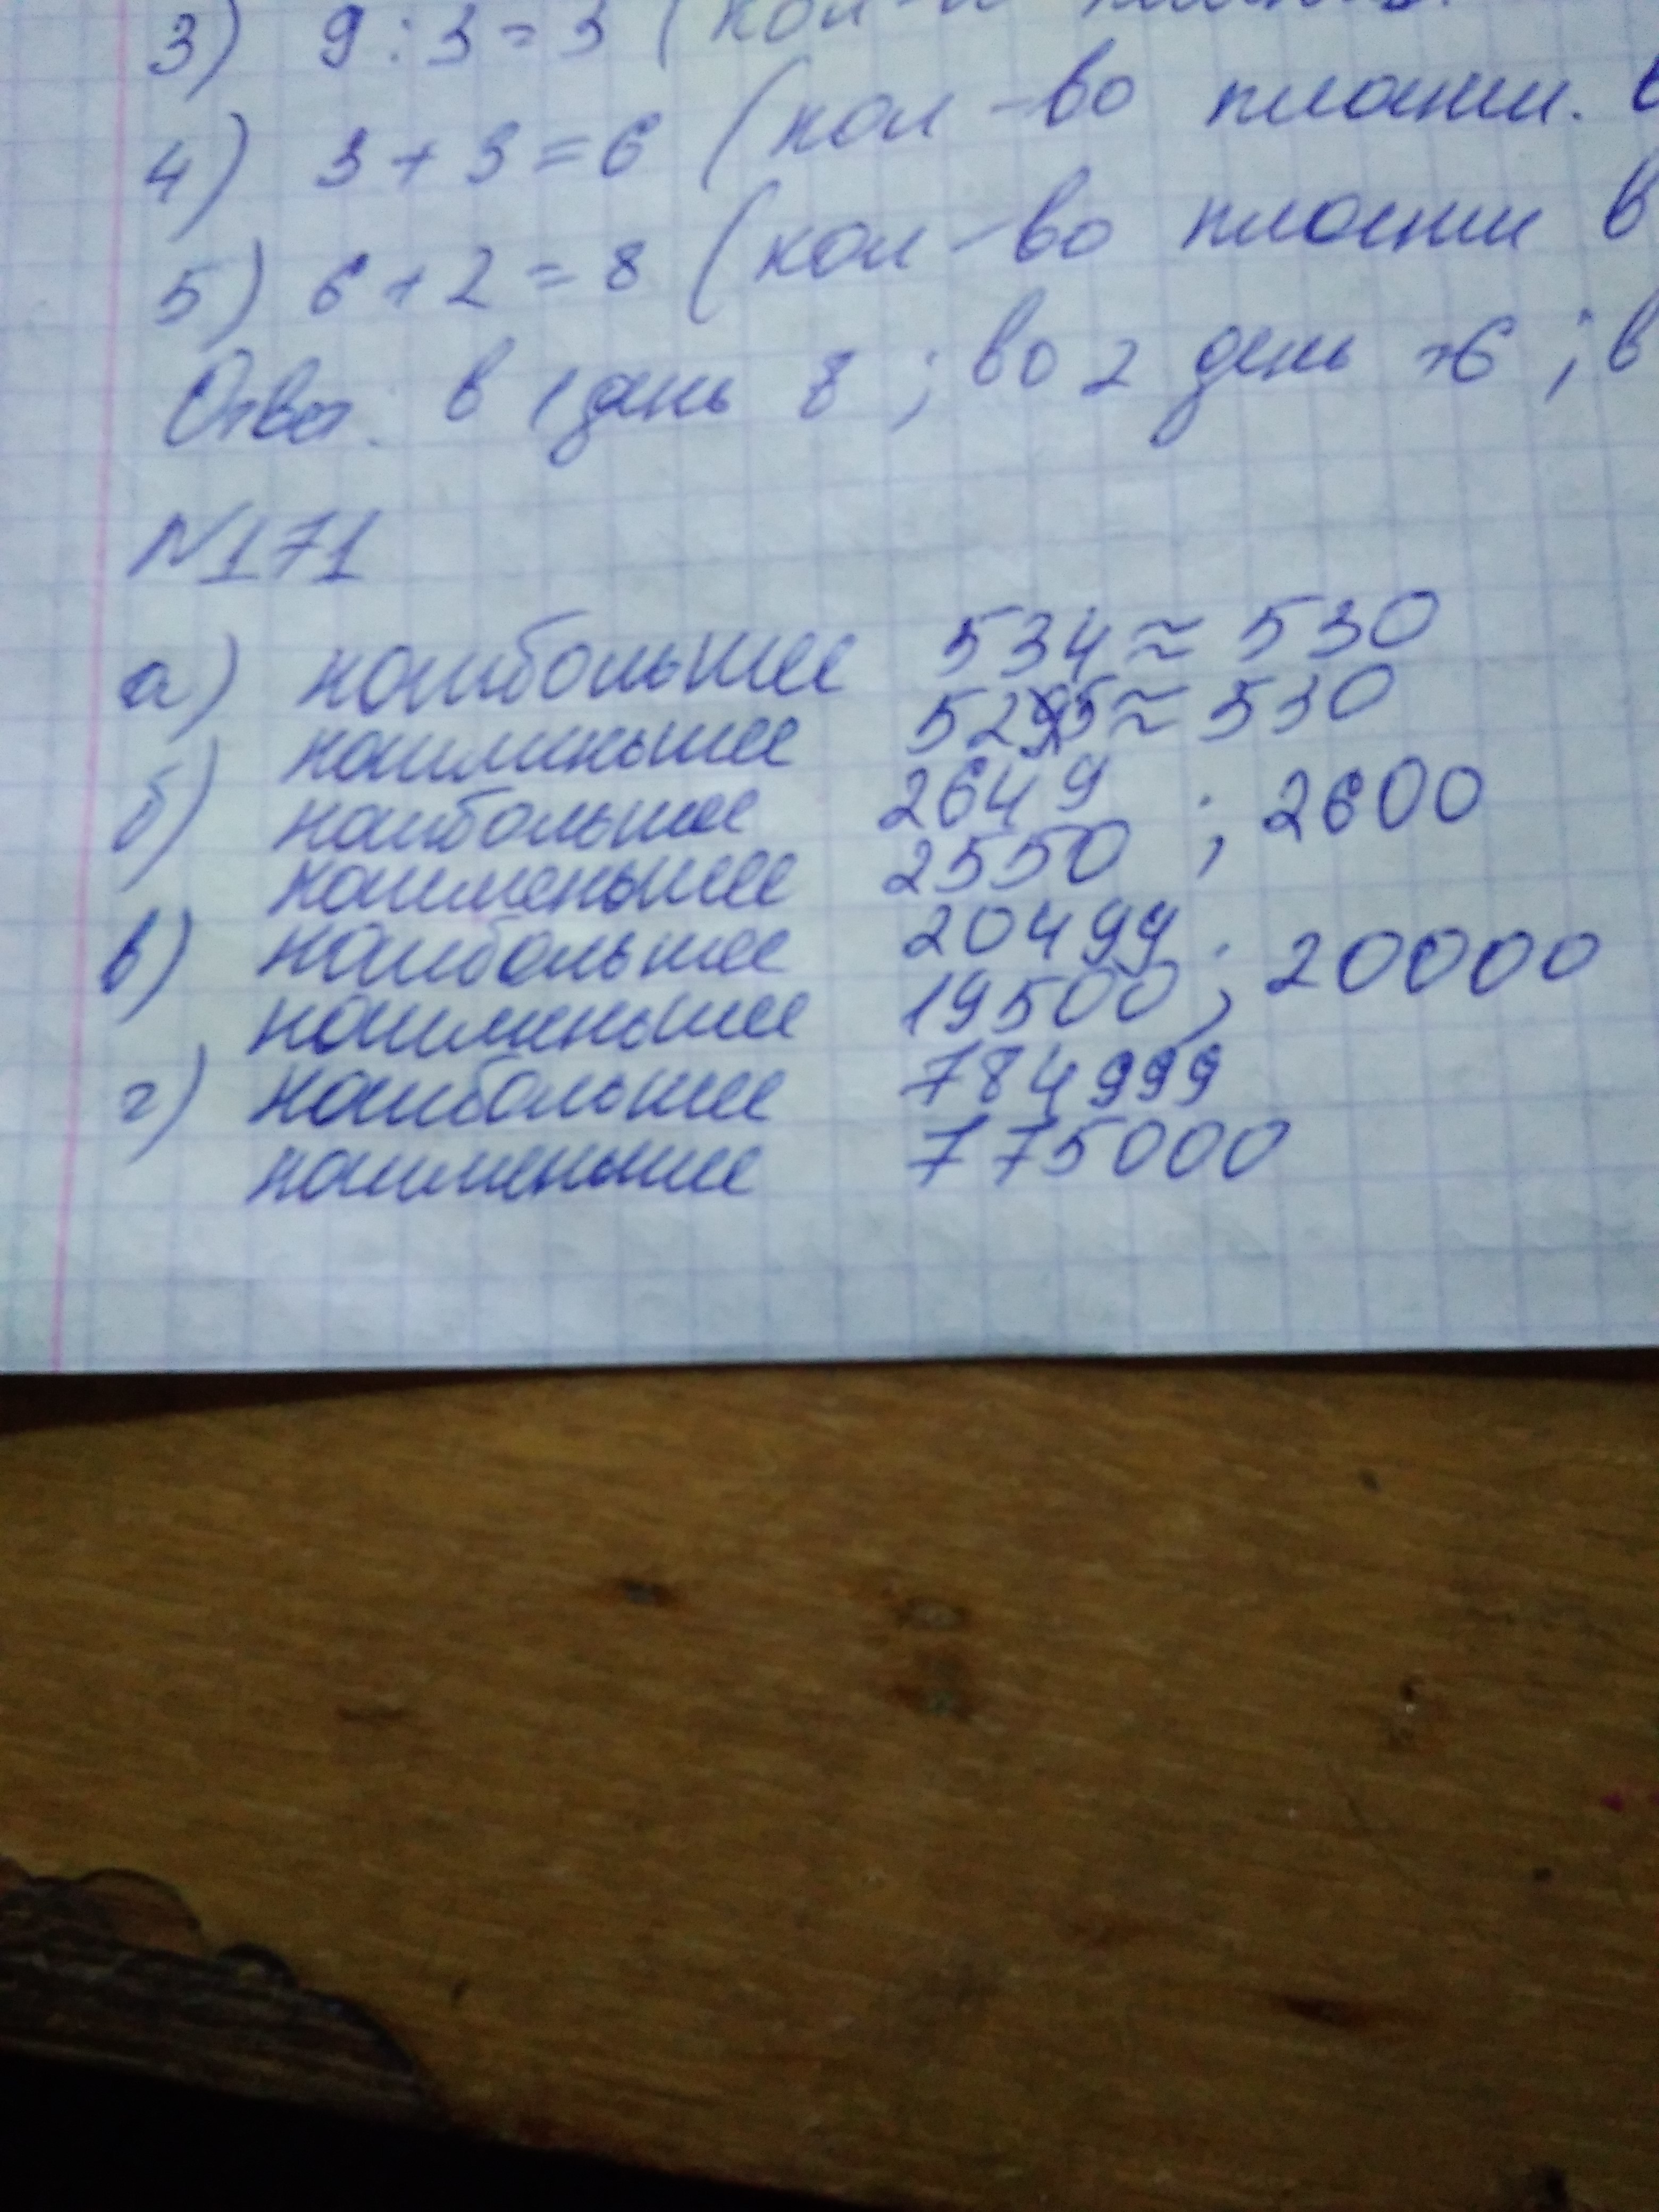 3) 9 : 3 = 3 (кол-
4) 3 + 3 = 6 (кол-во
5) 6 + 2 = 8 (кол-во в
Ответ: в 1 день 8 ; во 2 день 6 ; в
№171
а) наибольшее 534 ≈ 530
наименьшее 525 ≈ 530
б) наибольшее 2649
наименьшее 2550 ; 2600
в) наибольшее 20499
наименьшее 19500 ; 20000
г) наибольшее 784999
наименьшее 775000